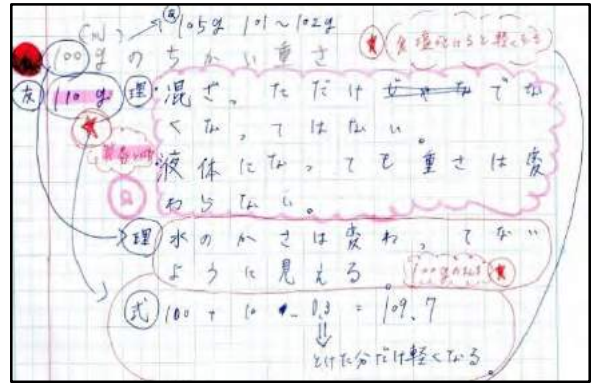 (水) → 105g 101〜102g
★ (食塩は とけると軽くなる)
100gのちかい重さ
友 110g 理・混ざっただけじゃなでな
くなってはない。
・液体になっても重さは変
わらない。
→理 水のかさは変わってない
ように見える。
100gのまま ★
式 100 + 10 - 0.3 = 109.7
⇓
とけた分だけ軽くなる。